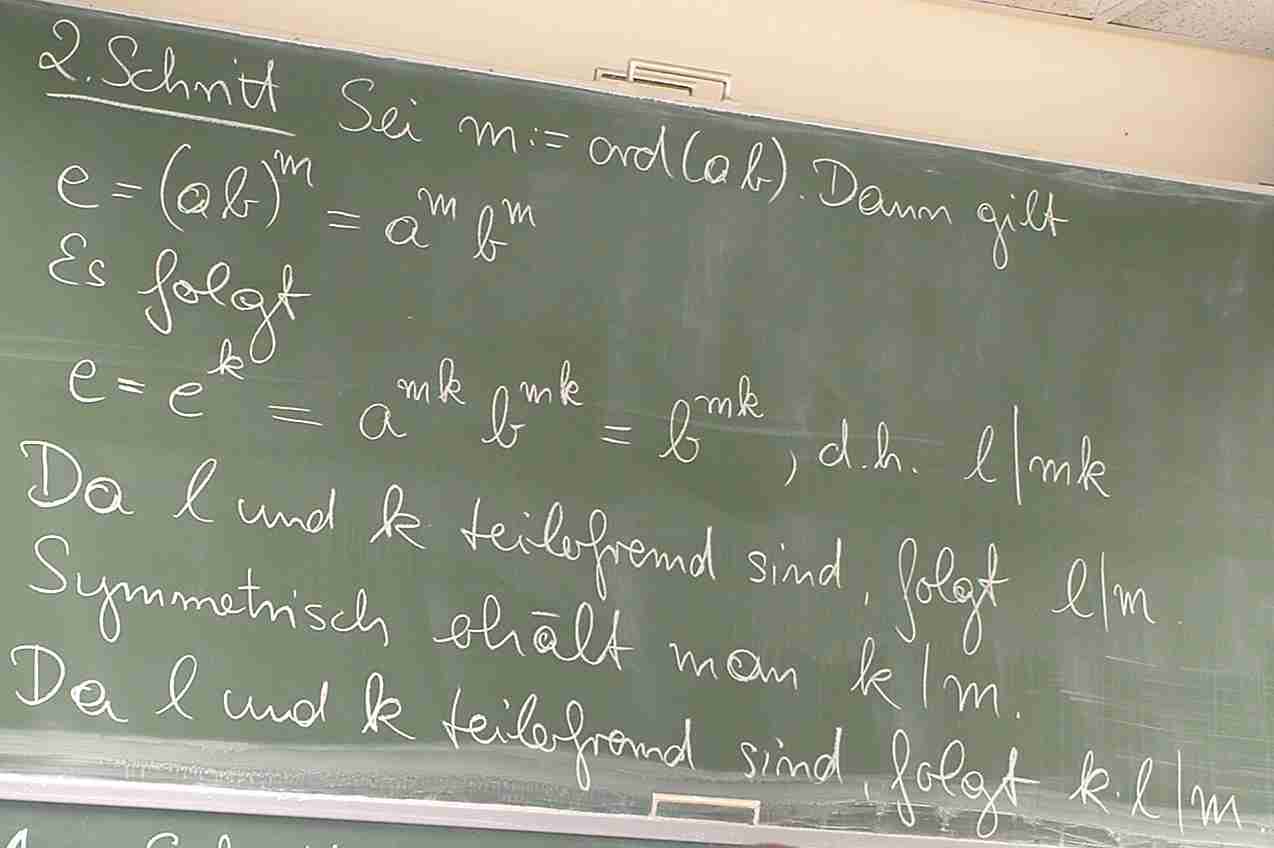 2. Schritt Sei m := ord(ab). Dann gilt
e = (ab)^m = a^m b^m
Es folgt
e = e^k = a^{mk} b^{mk} = b^{mk}, d.h. l|mk
Da l und k teilerfremd sind, folgt l|m.
Symmetrisch erhält man k|m.
Da l und k teilerfremd sind, folgt k·l|m.